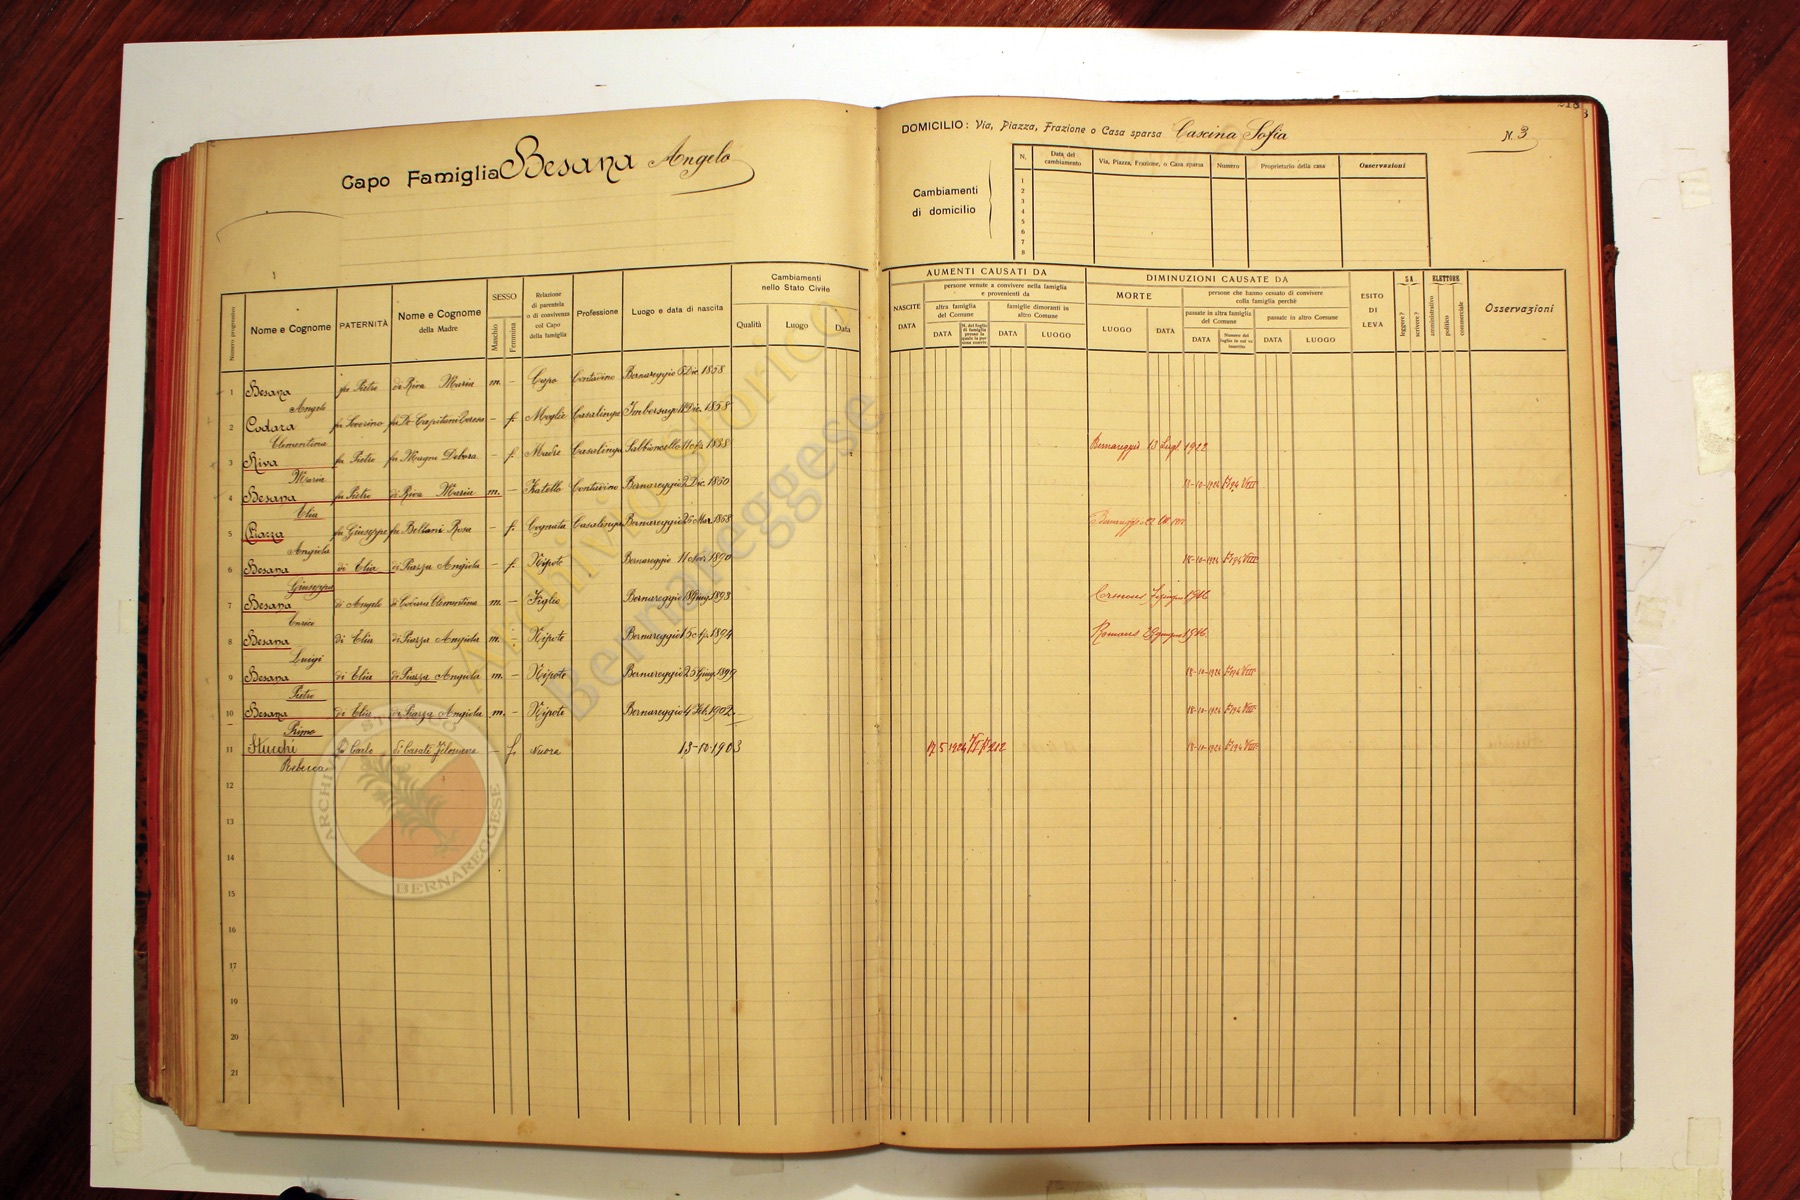 Capo Famiglia Besana Angelo
Cambiamenti
nello Stato Civile
SESSO
Numero progressivo
Nome e Cognome
PATERNITÀ
Nome e Cognome
della Madre
Maschio
Femmina
Relazione
di parentela
o di convivenza
col Capo
della famiglia
Professione
Luogo e data di nascita
Qualità
Luogo
Data
1 Besana Angelo fu Pietro di Riva Maria m. — Capo Contadino Bernareggio Dic. 1858
2 Codara Clementina fu Severino fu De Capitani Teresa — f. Moglie Casalinga Imbersago Dic. 1858
3 Riva Maria fu Pietro fu Magni Debora — f. Madre Casalinga Sabbioncello 1838
4 Besana Elia fu Pietro di Riva Maria m. — Fratello Contadino Bernareggio 2 Dic. 1860
5 Piazza Angiola fu Giuseppe fu Bellani Rosa — f. Cognata Casalinga Bernareggio 25 Mar. 1868
6 Besana Giuseppa di Elia di Piazza Angiola — f. Nipote Bernareggio 11 1890
7 Besana Enrico di Angelo di Codara Clementina m. — Figlio Bernareggio 18 Giug. 1893
8 Besana Luigi di Elia di Piazza Angiola m. — Nipote Bernareggio 15 Ap. 1894
9 Besana Pietro di Elia di Piazza Angiola m. — Nipote Bernareggio 25 Giug. 1899
10 Besana Primo di Elia di Piazza Angiola m. — Nipote Bernareggio 4 Feb. 1902
11 Stucchi Rebecca fu Carlo di Casati Filomena — f. Nuora 13-10-1903
12
13
14
15
16
17
19
20
21
DOMICILIO: Via, Piazza, Frazione o Casa sparsa Cascina Sofia
N. 3
Cambiamenti
di domicilio
N.
Data del
cambiamento
Via, Piazza, Frazione, o Casa sparsa
Numero
Proprietario della casa
Osservazioni
1
2
3
4
5
6
7
8
AUMENTI CAUSATI DA
DIMINUZIONI CAUSATE DA
NASCITE
DATA
persone venute a convivere nella famiglia
e provenienti da
altra famiglia
del Comune
famiglie dimoranti in
altro Comune
DATA
N. del foglio
di famiglia
presso la
quale la per
sona conviv.
DATA
LUOGO
MORTE
LUOGO
DATA
persone che hanno cessato di convivere
colla famiglia perchè
passate in altra famiglia
del Comune
passate in altro Comune
DATA
Numero del
foglio in cui va
inscritto
DATA
LUOGO
ESITO
DI
LEVA
SA
leggere?
scrivere?
ELETTORE
amministrativo
politico
commerciale
Osservazioni
Bernareggio 13 Lugl. 1922
18-10-1924 F° 194 VIII
18-10-1924 F° 194 VIII
Cormons Giugno 1916
Romans Giugno 1916
18-10-1924 F° 194 VIII
18-10-1924 F° 194 VIII
5 1924 212
18-10-1924 F° 194 VIII
Archivio Storico
Bernareggese
ARCHIVIO STORICO
BERNAREGGESE